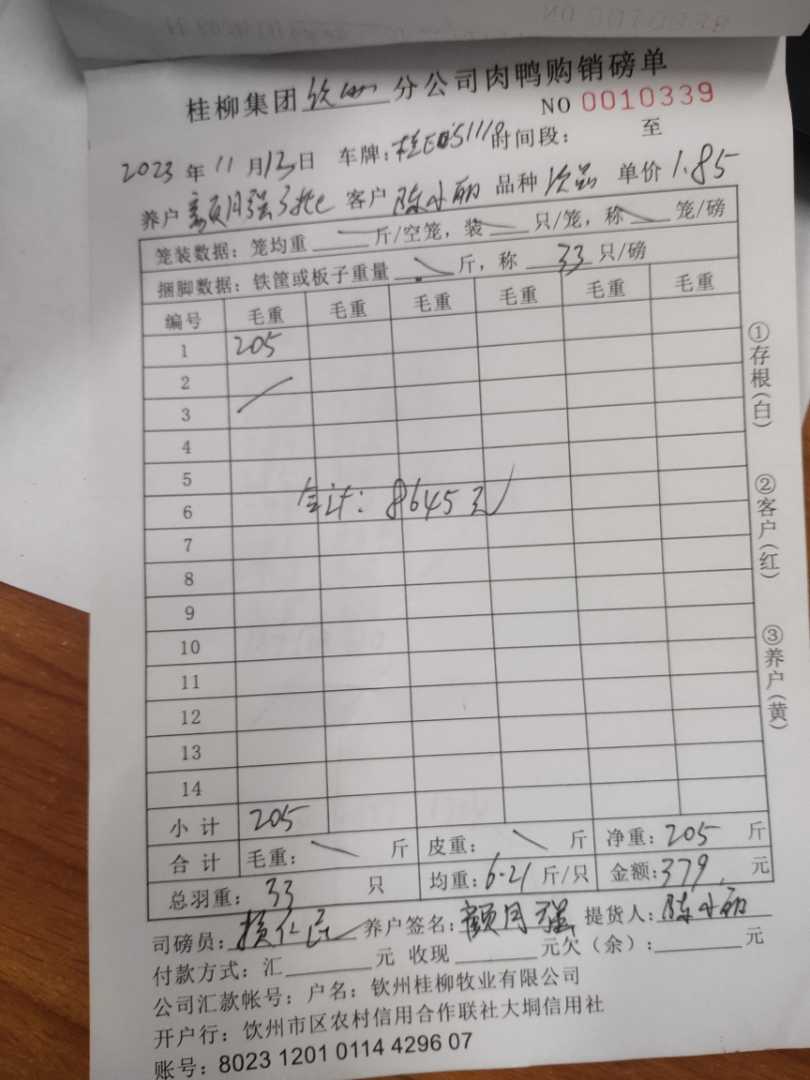 桂柳集团钦州分公司肉鸭购销磅单
NO 0010339
2023年11月13日 车牌: 时间段: 至
养户 客户 陈小丽 品种 次品 单价 1.85
笼装数据:笼均重 斤/空笼,装 只/笼,称 笼/磅
捆脚数据:铁筐或板子重量 斤,称 33 只/磅
编号 毛重 毛重 毛重 毛重 毛重 毛重
1 205
2
3
4
5
6
合计:8645元
7
8
9
10
11
12
13
14
小计 205
合计 毛重: 斤 皮重: 斤 净重:205 斤
总羽重:33 只 均重:6.21 斤/只 金额:379. 元
司磅员: 养户签名:颜月强 提货人:陈小丽
付款方式:汇 元 收现 元欠(余): 元
公司汇款帐号:户名:钦州桂柳牧业有限公司
开户行:钦州市区农村信用合作联社大垌信用社
账号:8023 1201 0114 4296 07
①存根(白)
②客户(红)
③养户(黄)